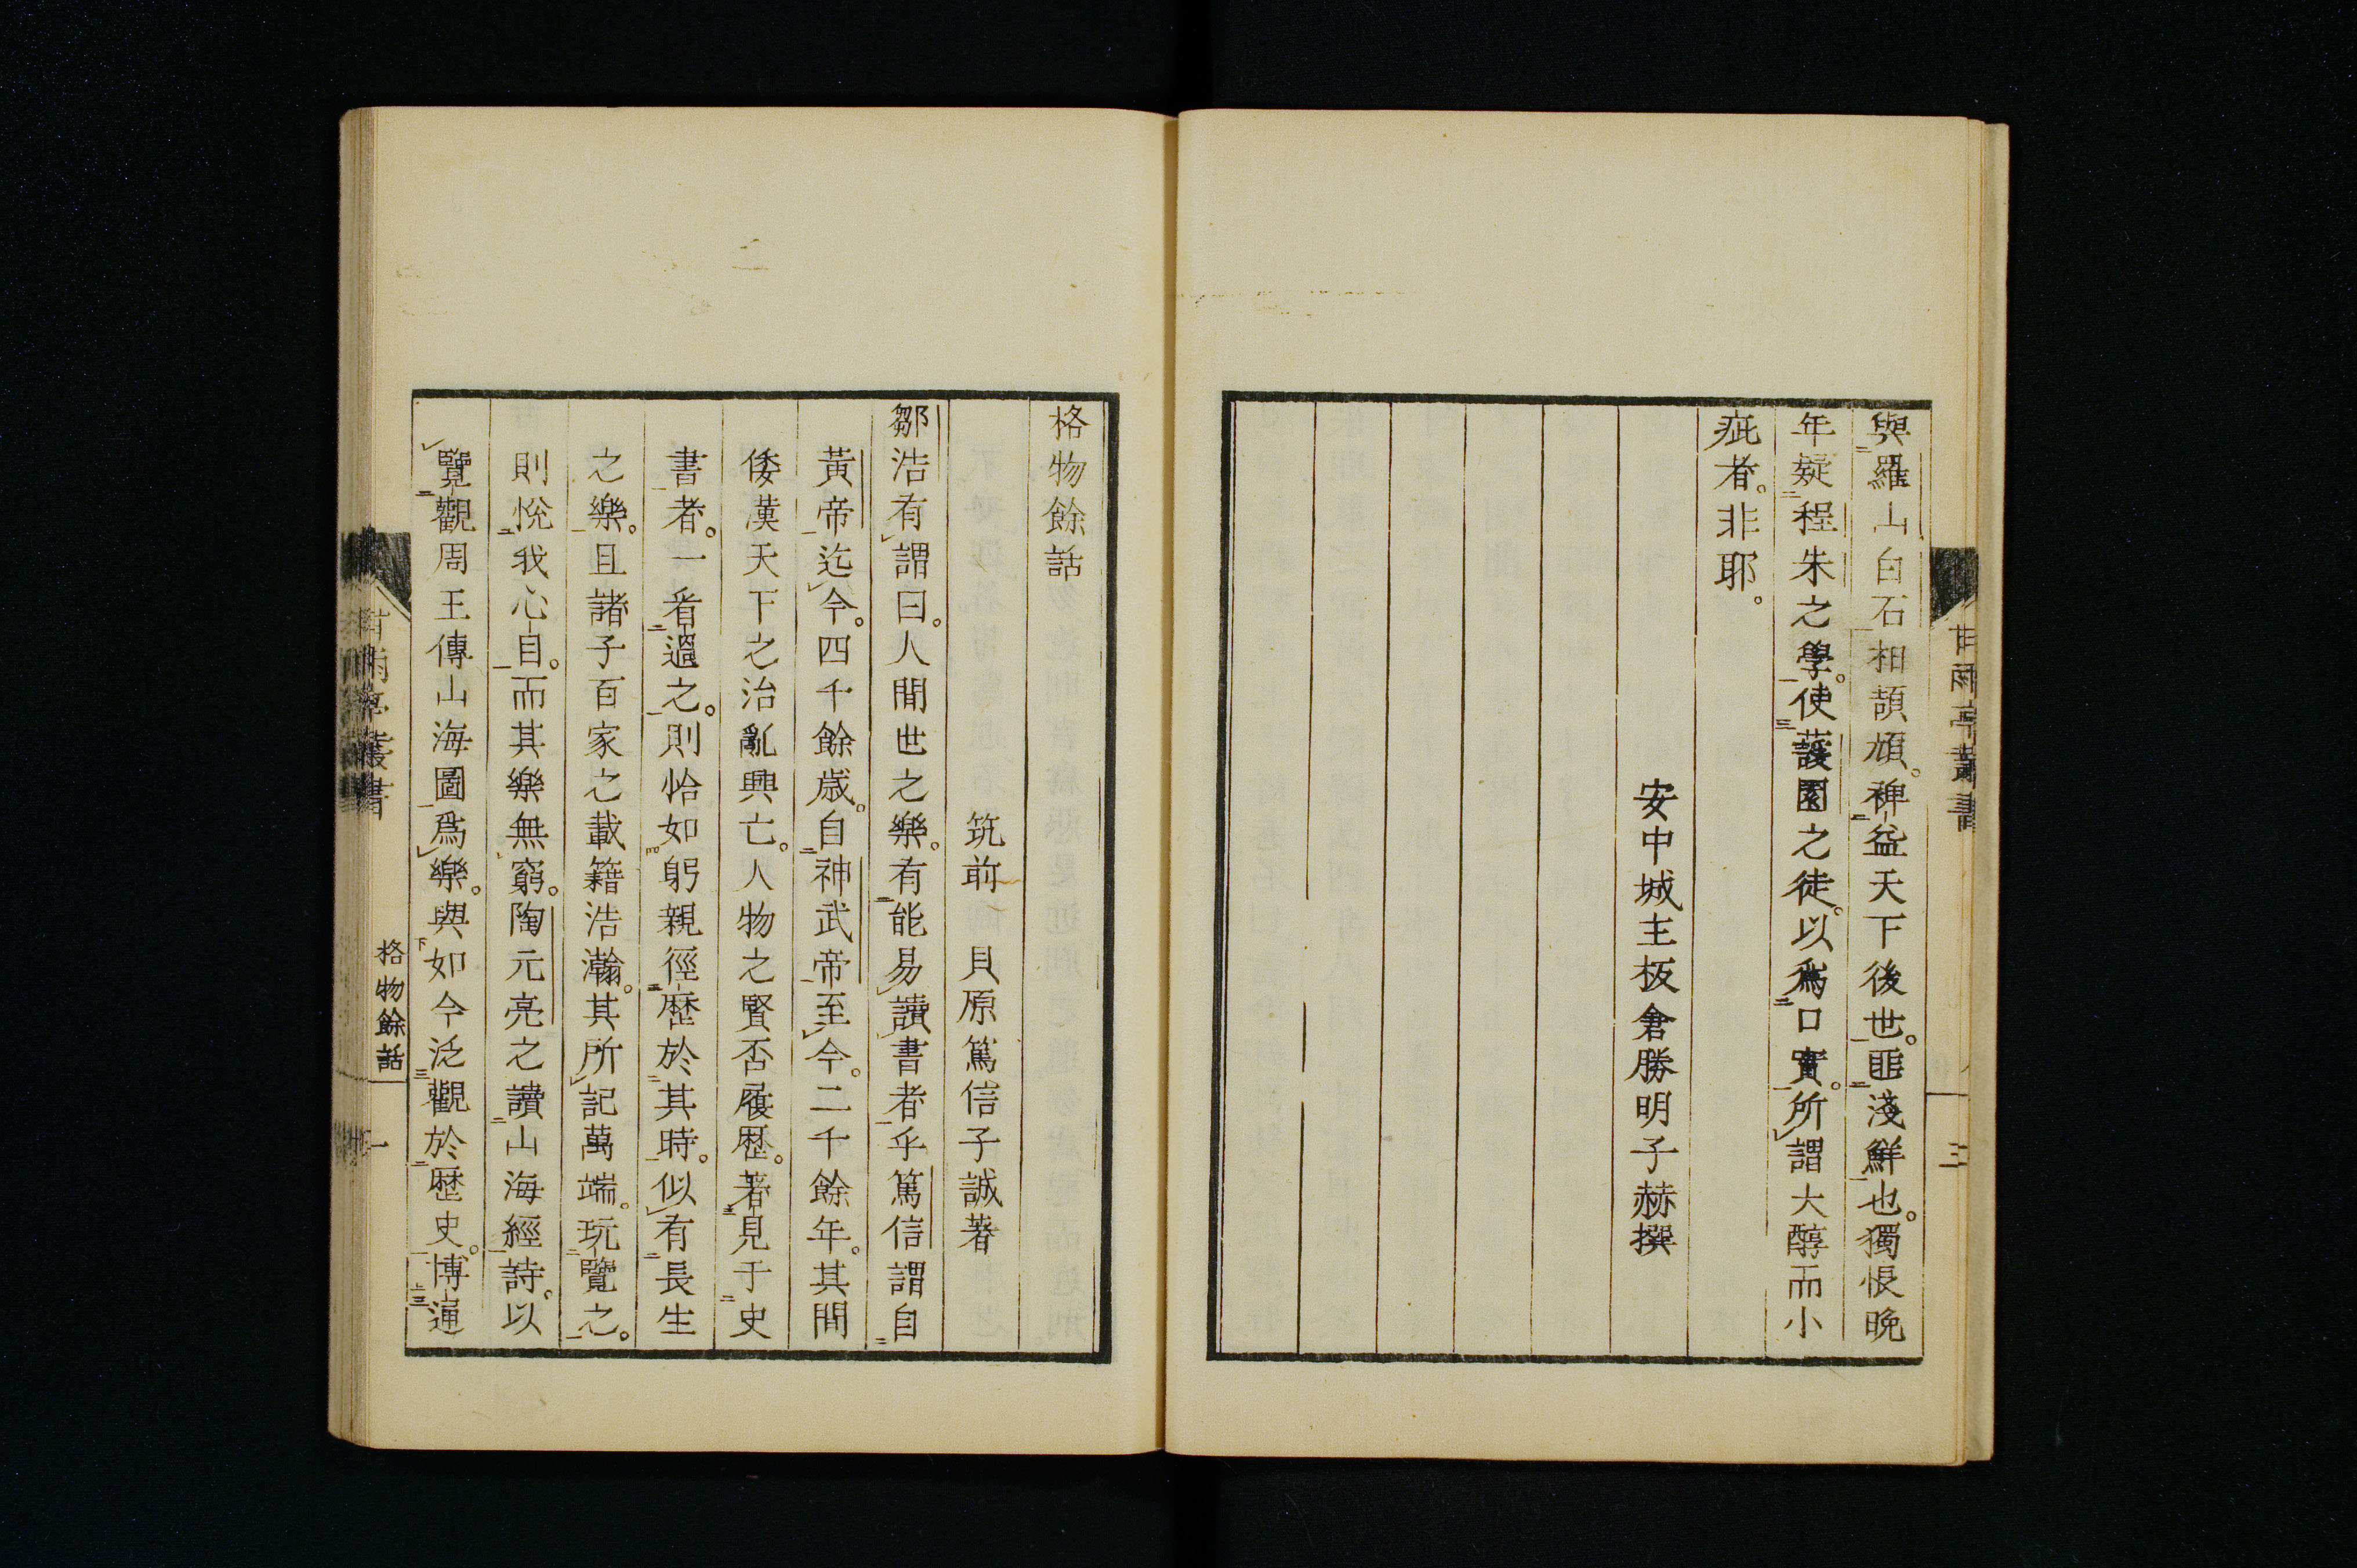 與羅山白石相頡頏。裨益天下後世。匪淺鮮也。獨悵晚
年疑程朱之學。使蘐園之徒。以爲口實。所謂大醇而小
疵者。非耶。
安中城主板倉勝明子赫撰
甘雨亭叢書
三
格物餘話
筑前 貝原篤信子誠著
鄒浩有謂曰。人間世之樂。有能易讀書者乎篤信謂自
黃帝迄今。四千餘歲。自神武帝至今。二千餘年。其間
倭漢天下之治亂興亡。人物之賢否履歷。著見于史
書者。一看過之。則恰如躬親徑歷於其時。似有長生
之樂。且諸子百家之載籍浩瀚。其所記萬端。玩覽之。
則悅我心目。而其樂無窮。陶元亮之讀山海經詩。以
覽觀周王傳山海圖爲樂。與如今泛觀於歷史。博通
甘雨亭叢書
格物餘話
一